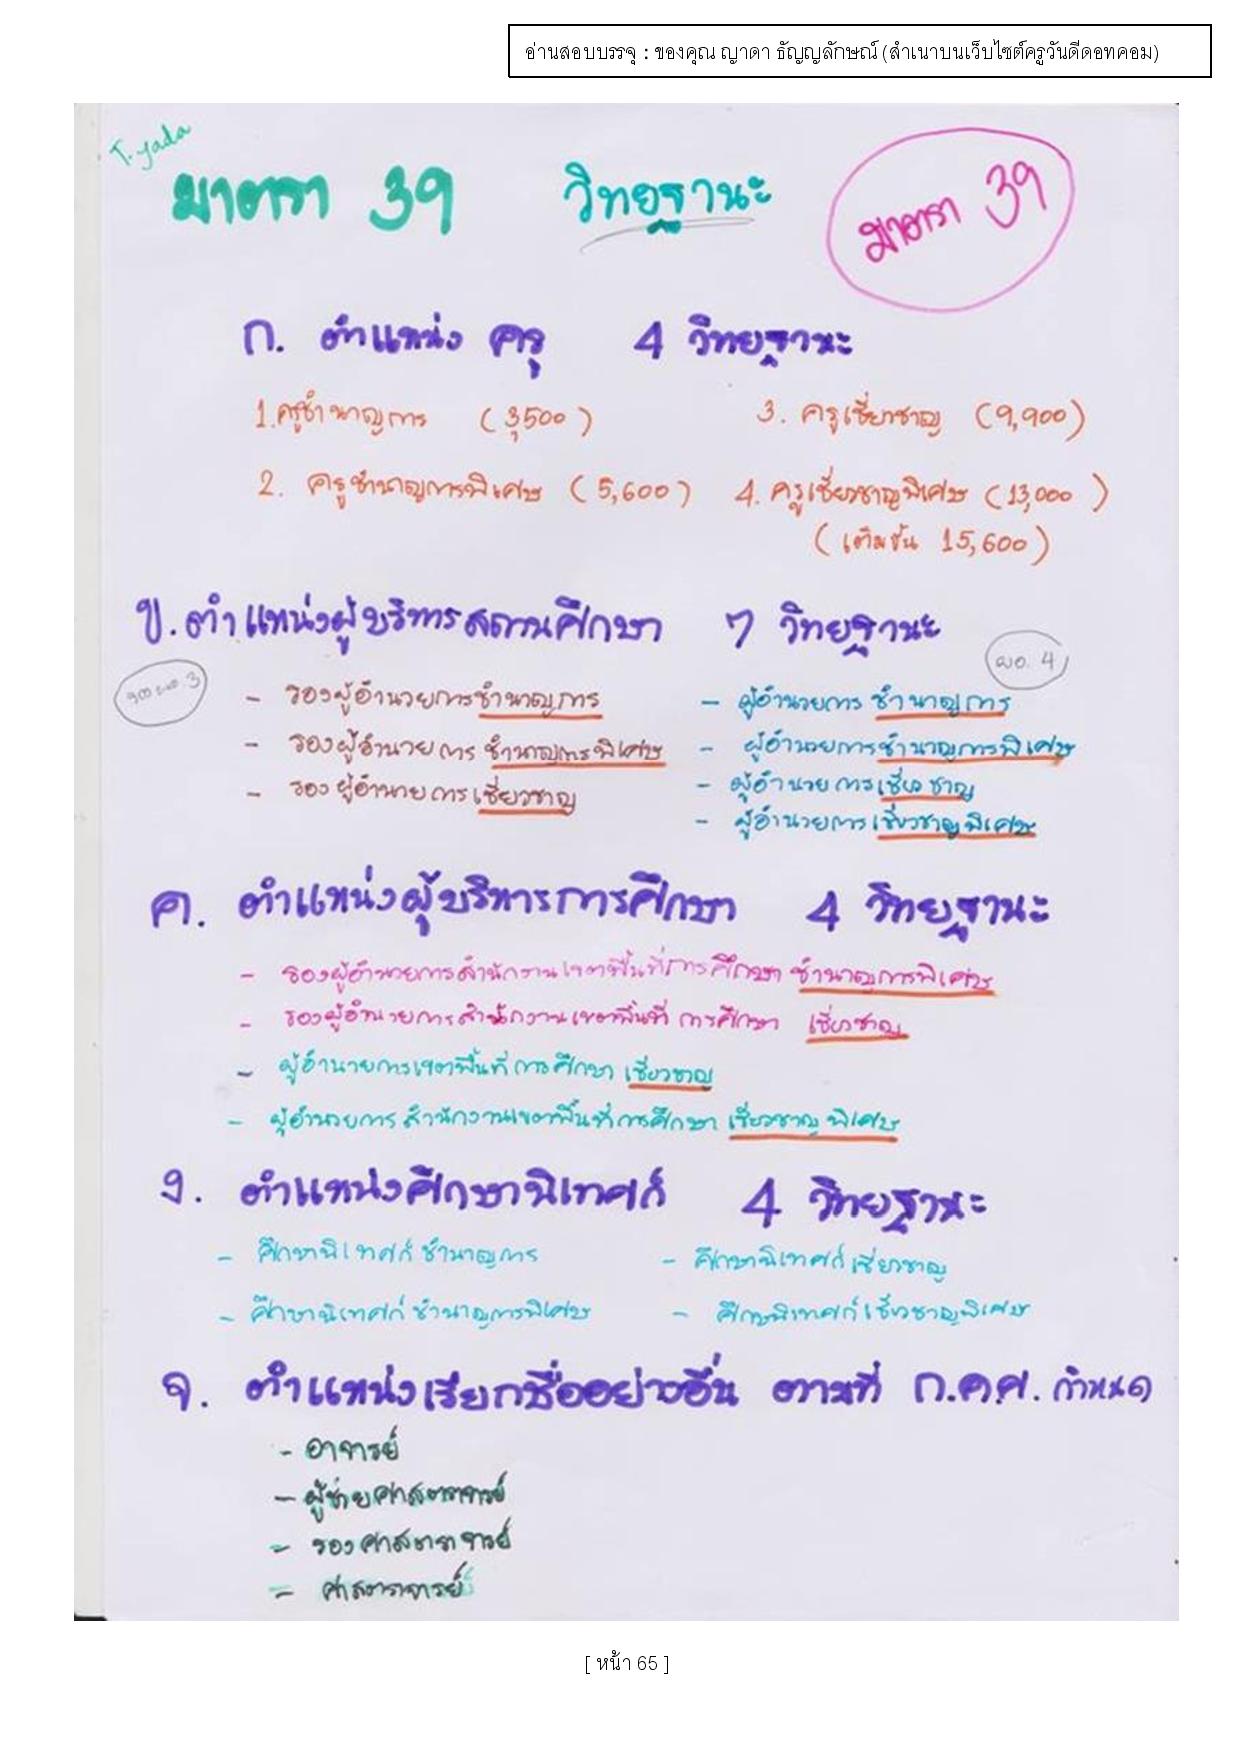 อ่านสอบบรรจุ : ของคุณ ญาดา ธัญญลักษณ์ (สำเนาบนเว็บไซต์ครูวันดีดอทคอม)
T. yada
มาตรา 39 วิทยฐานะ
มาตรา 39
ก. ตำแหน่ง ครู 4 วิทยฐานะ
1. ครูชำนาญการ (3,500) 3. ครูเชี่ยวชาญ (9,900)
2. ครูชำนาญการพิเศษ (5,600) 4. ครูเชี่ยวชาญพิเศษ (13,000)
(เต็มขั้น 15,600)
ข. ตำแหน่งผู้บริหารสถานศึกษา 7 วิทยฐานะ
รอง ผอ. 3 ผอ. 4
- รองผู้อำนวยการชำนาญการ - ผู้อำนวยการ ชำนาญการ
- รองผู้อำนวยการ ชำนาญการพิเศษ - ผู้อำนวยการชำนาญการพิเศษ
- รองผู้อำนายการเชี่ยวชาญ - ผู้อำนวยการเชี่ยวชาญ
- ผู้อำนวยการเชี่ยวชาญพิเศษ
ค. ตำแหน่งผู้บริหารการศึกษา 4 วิทยฐานะ
- รองผู้อำนวยการสำนักงานเขตพื้นที่การศึกษา ชำนาญการพิเศษ
- รองผู้อำนวยการสำนักงานเขตพื้นที่การศึกษา เชี่ยวชาญ
- ผู้อำนวยการเขตพื้นที่การศึกษา เชี่ยวชาญ
- ผู้อำนวยการสำนักงานเขตพื้นที่การศึกษา เชี่ยวชาญพิเศษ
ง. ตำแหน่งศึกษานิเทศก์ 4 วิทยฐานะ
- ศึกษานิเทศก์ชำนาญการ - ศึกษานิเทศก์เชี่ยวชาญ
- ศึกษานิเทศก์ชำนาญการพิเศษ - ศึกษานิเทศก์เชี่ยวชาญพิเศษ
จ. ตำแหน่งเรียกชื่ออย่างอื่น ตามที่ ก.ค.ศ. กำหนด
- อาจารย์
- ผู้ช่วยศาสตราจารย์
- รองศาสตราจารย์
- ศาสตราจารย์
[ หน้า 65 ]